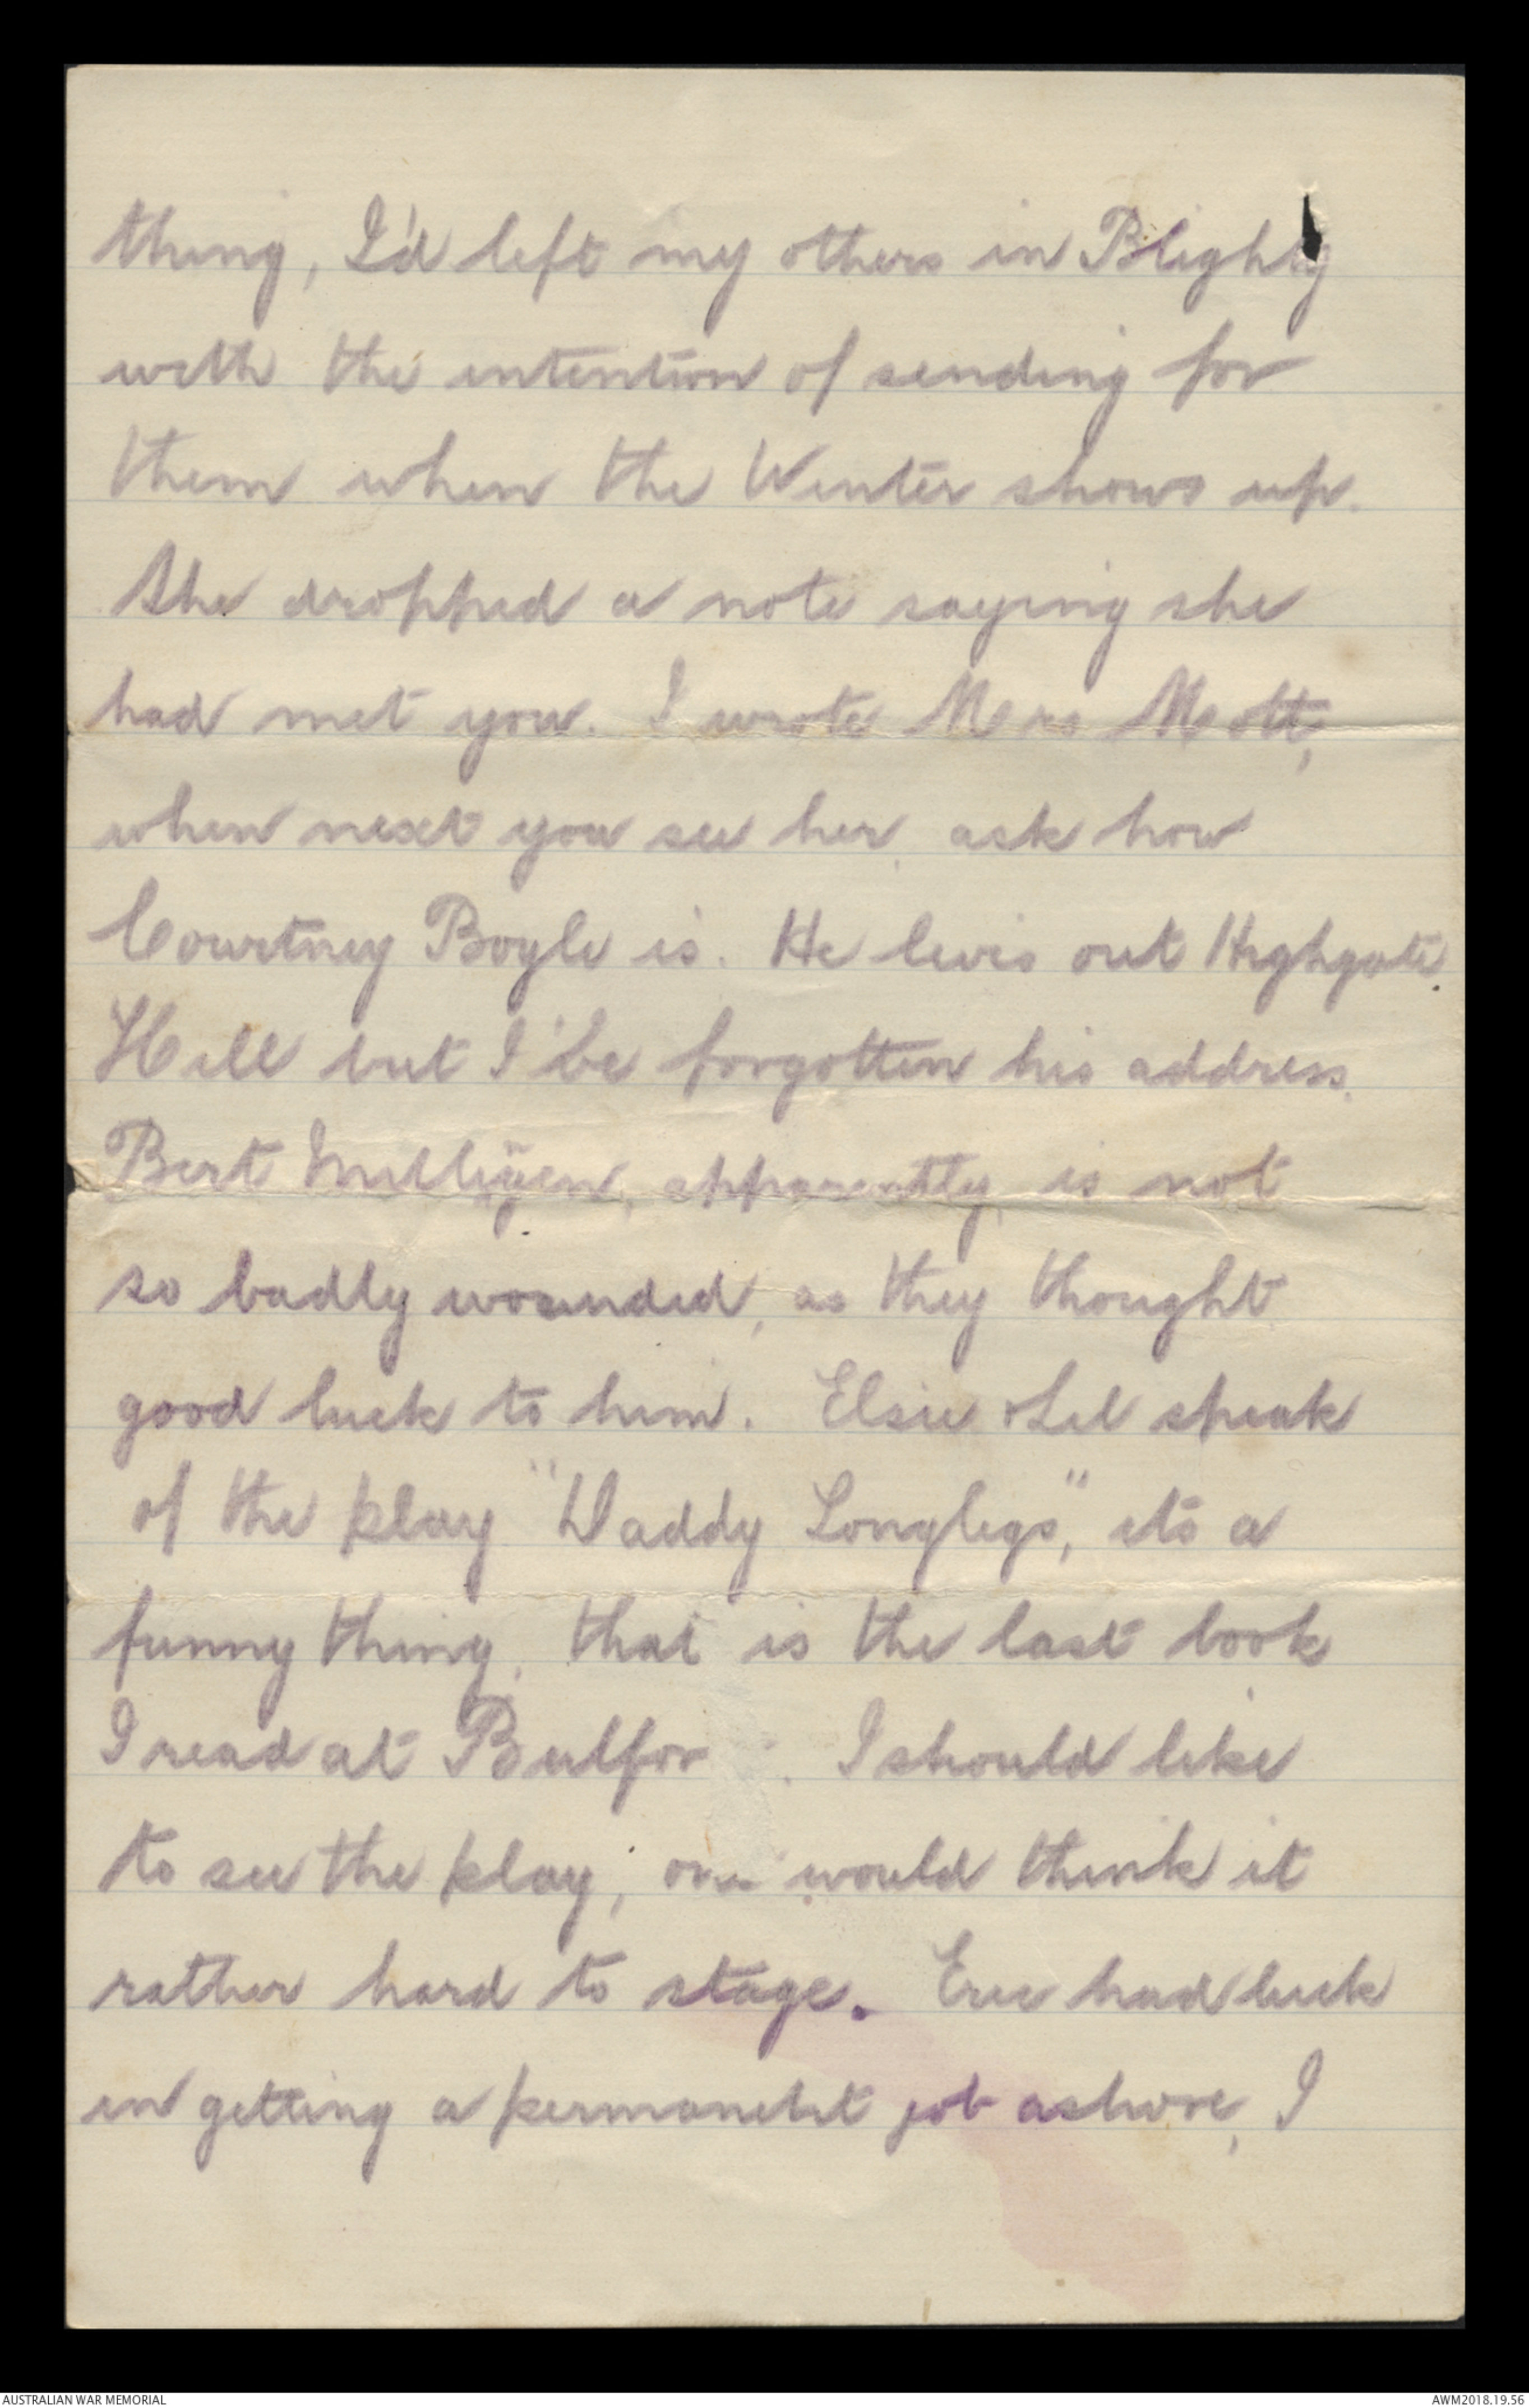 thing, I'd left my others in Blighty
with the intention of sending for
them when the Winter shows up.
She dropped a note saying she
had met you. I wrote Mrs Mott,
when next you see her, ask how
Courtney Boyle is. He lives out Highgate
Hill but I've forgotten his address.
Bert Milligen, apparently, is not
so badly wounded, as they thought
good luck to him. Elsie & Lil speak
of the play "Daddy Longlegs", its a
funny thing, that is the last book
I read at Bulfor . I should like
to see the play, one would think it
rather hard to stage. Eric had luck
in getting a permanent job ashore, I
AUSTRALIAN WAR MEMORIAL
AWM2018.19.56